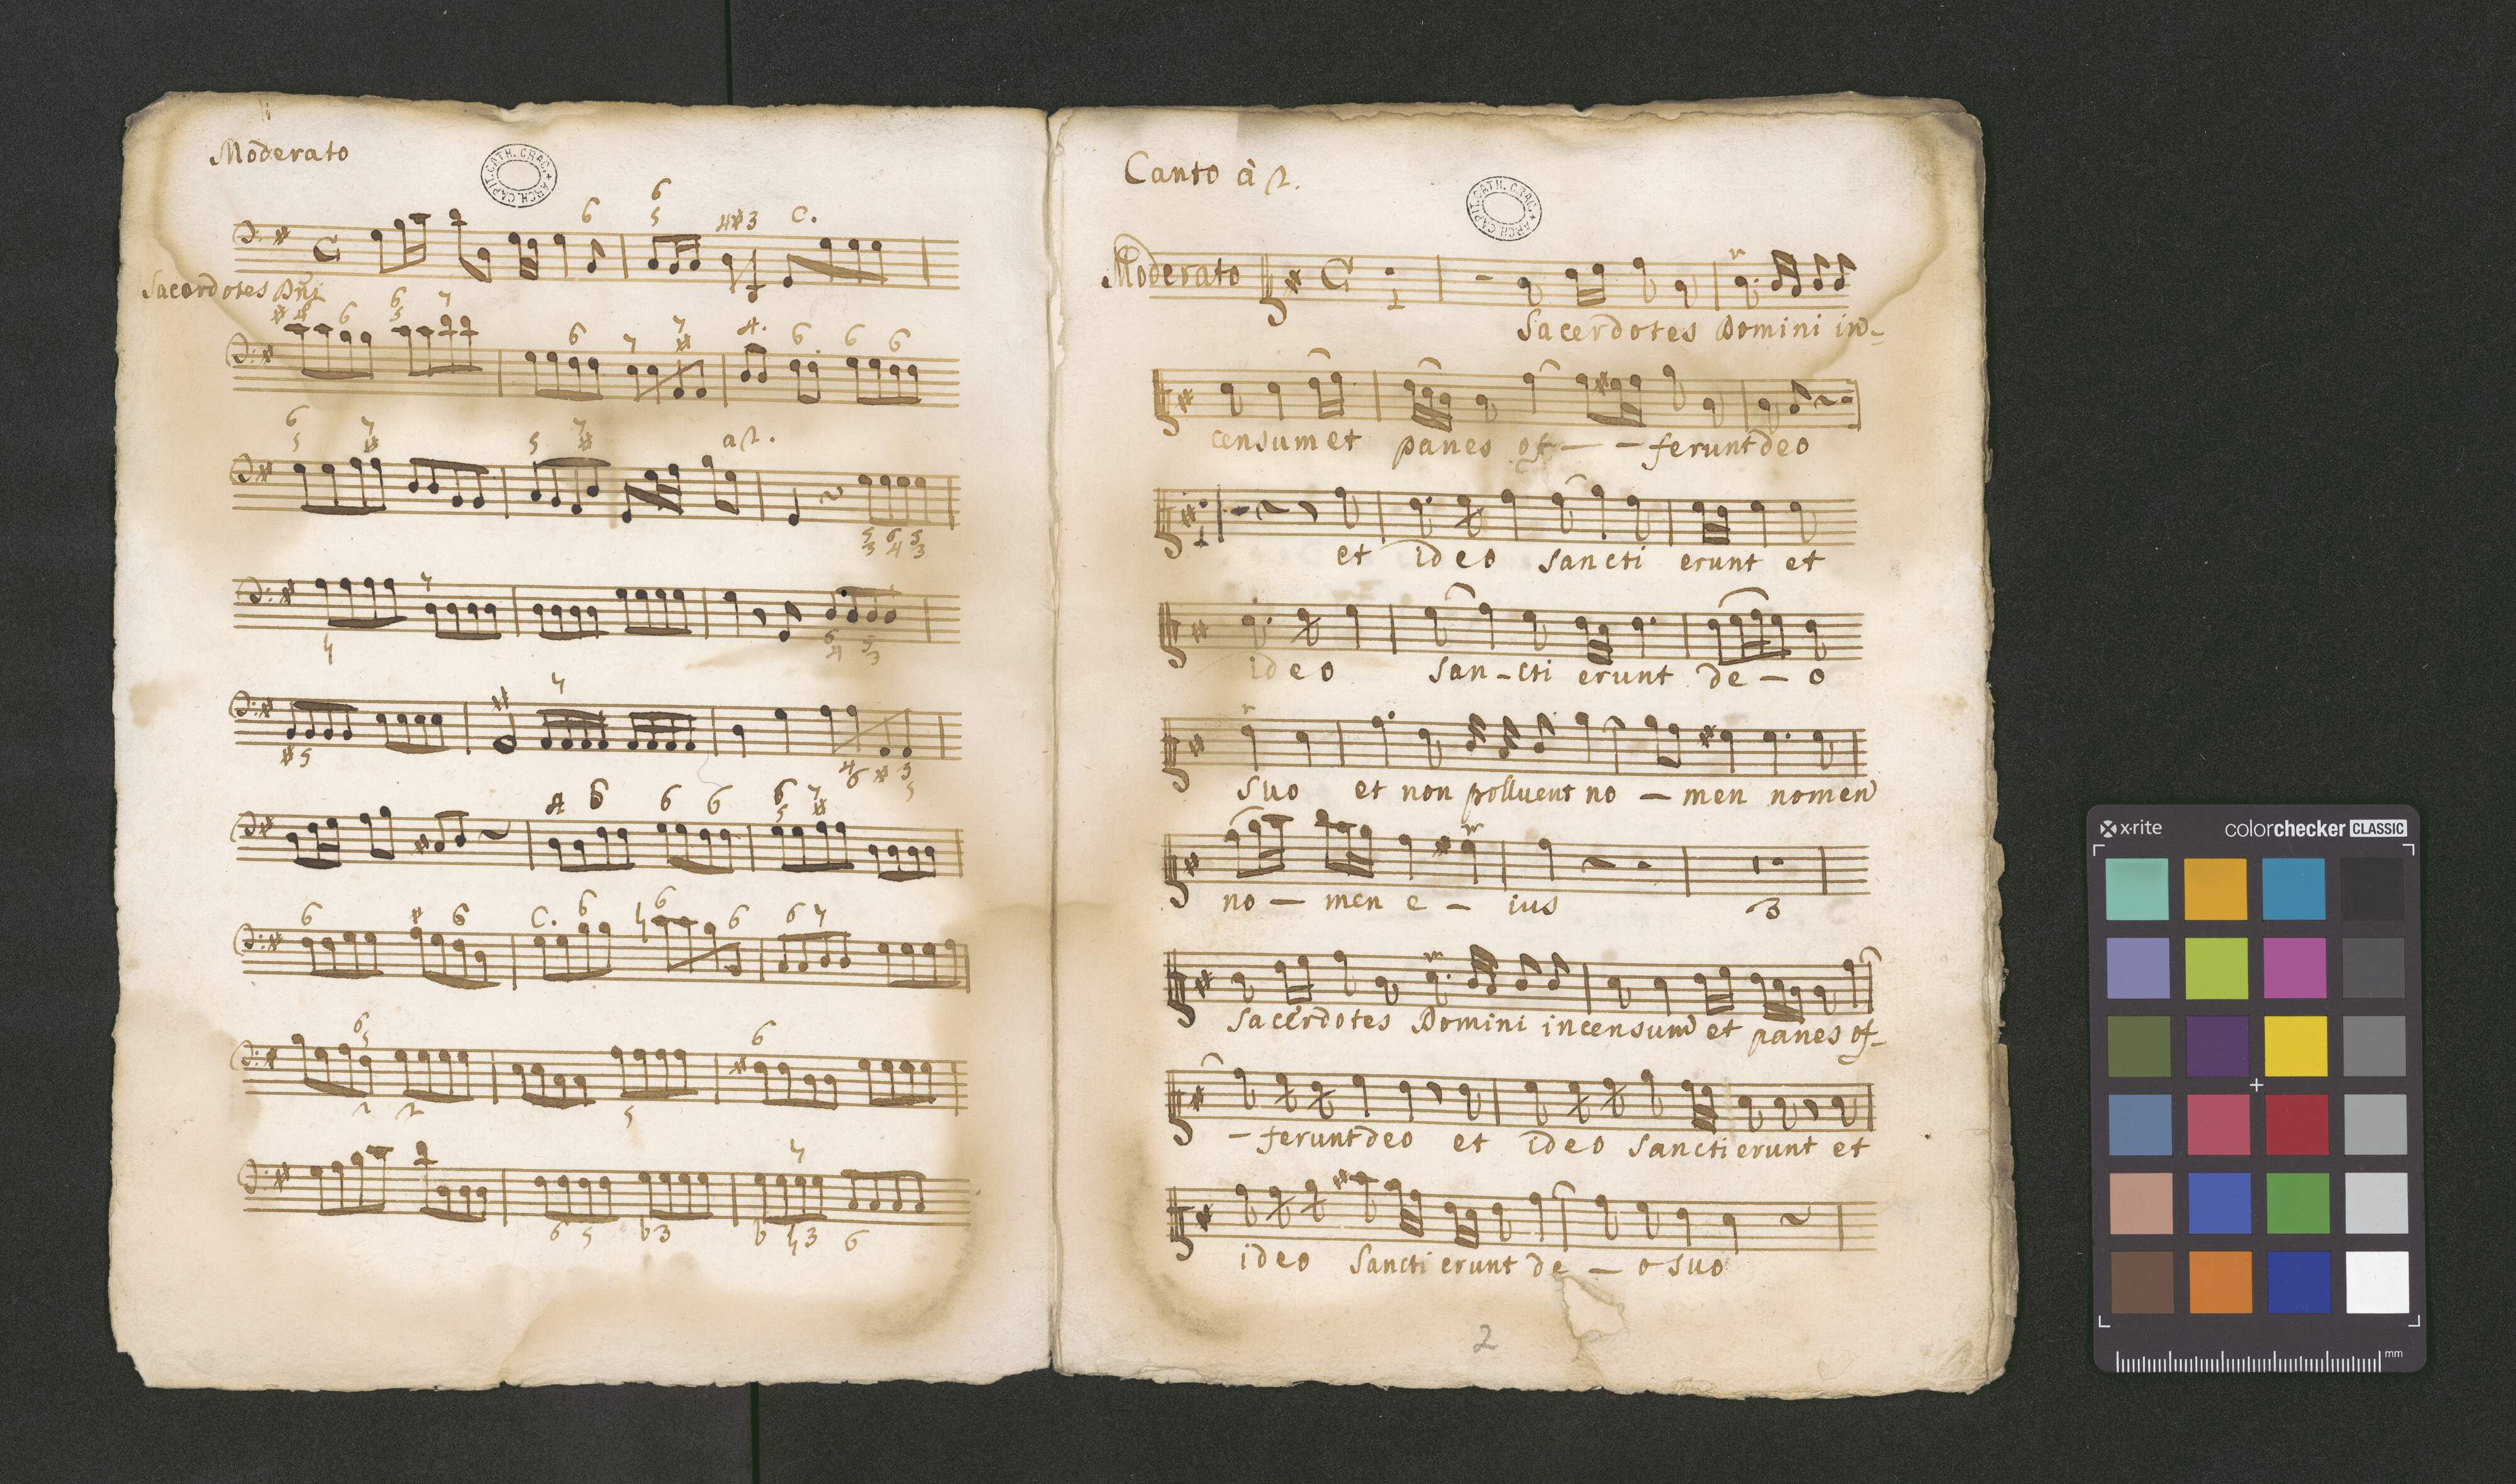 Moderato
ARCH. CAPIT. CATH. CRAC.
6 6 5 4#3 C.
Sacerdotes Dñi
6 6 5 7
6 7 7 A. 6 6 6
6 5 7 5 7 a 2.
5 3 6 4 5 3
7
6 4 5 3
5
4 6 3 5
A 6 6 6 6 5 7
6 6 C. 6 6 6 6
6 5 6
2 2 5
6 5 b3 b 3 6
Canto à 2.
ARCH. CAPIT. CATH. CRAC.
Moderato
1
Sacerdotes Domini in-
censum et panes of - - ferunt deo
1
et ideo sancti erunt et
ideo san - cti erunt de - o
suo et non polluent no - men nomen
no - men e - ius 3
Sacerdotes Domini incensum et panes of-
- ferunt deo et ideo sancti erunt et
ideo sancti erunt de - o suo
2
x-rite
colorchecker CLASSIC
mm